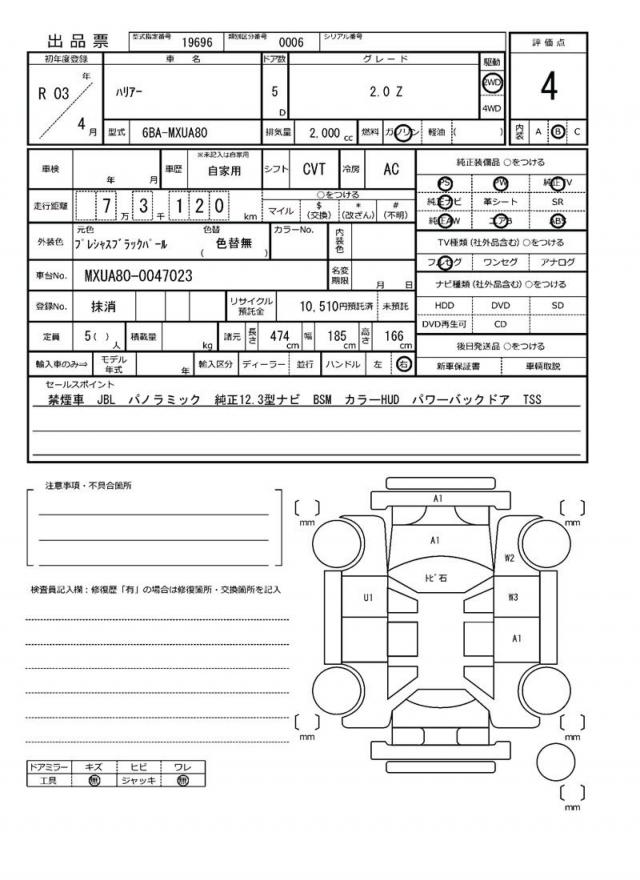 出品票 型式指定番号 19696 類別区分番号 0006 シリアル番号
初年度登録 車名 ドア数 グレード 駆動 評価点
R 03 年 4 月 ハリアー 5 D 2.0 Z 2WD 4WD 4
型式 6BA-MXUA80 排気量 2,000 cc 燃料 ガソリン 軽油 ( ) 内装 A B C
車検 年 月 車歴 ※未記入は自家用 自家用 シフト CVT 冷房 AC
走行距離 7 万 3 千 1 2 0 km ○をつける マイル $(交換) *(改ざん) #(不明)
外装色 元色 プレシャスブラックパール 色替 ( 色替無 ) カラーNo. 内装色
車台No. MXUA80-0047023 名変期限 月 日
登録No. 抹消 リサイクル預託金 10,510円預託済 未預託
定員 5( ) 人 積載量 kg 諸元 長さ 474 cm 幅 185 cm 高さ 166 cm
輸入車のみ⇒ モデル年式 年 輸入区分 ディーラー 並行 ハンドル 左 右
純正装備品 ○をつける
PS PW 純正TV
純正ナビ 革シート SR
純正AW エアB ABS
TV種類(社外品含む)○をつける
フルセグ ワンセグ アナログ
ナビ種類(社外品含む)○をつける
HDD DVD SD
DVD再生可 CD
後日発送品 ○をつける
新車保証書 車輌取説
セールスポイント
禁煙車 JBL パノラミック 純正12.3型ナビ BSM カラーHUD パワーバックドア TSS
注意事項・不具合箇所
検査員記入欄：修復歴「有」の場合は修復箇所・交換箇所を記入
ドアミラー キズ ヒビ ワレ
工具 無 ジャッキ 無
A1
[ ] mm [ ] mm
A1
W2
トビ石
U1 W3
A1
[ ] mm [ ] mm
[ ] mm